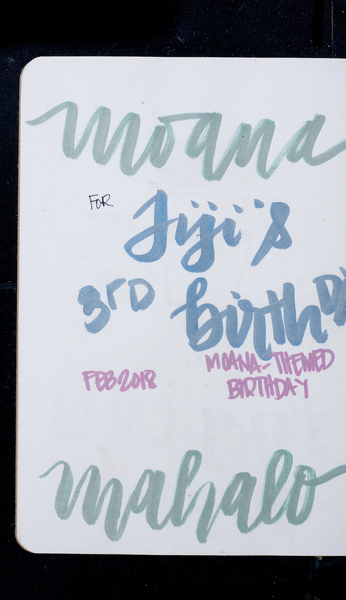 moana
FOR
Jiji's
3RD birthD
MOANA-THEMED
FEB 2018 BIRTHDAY
mahalo